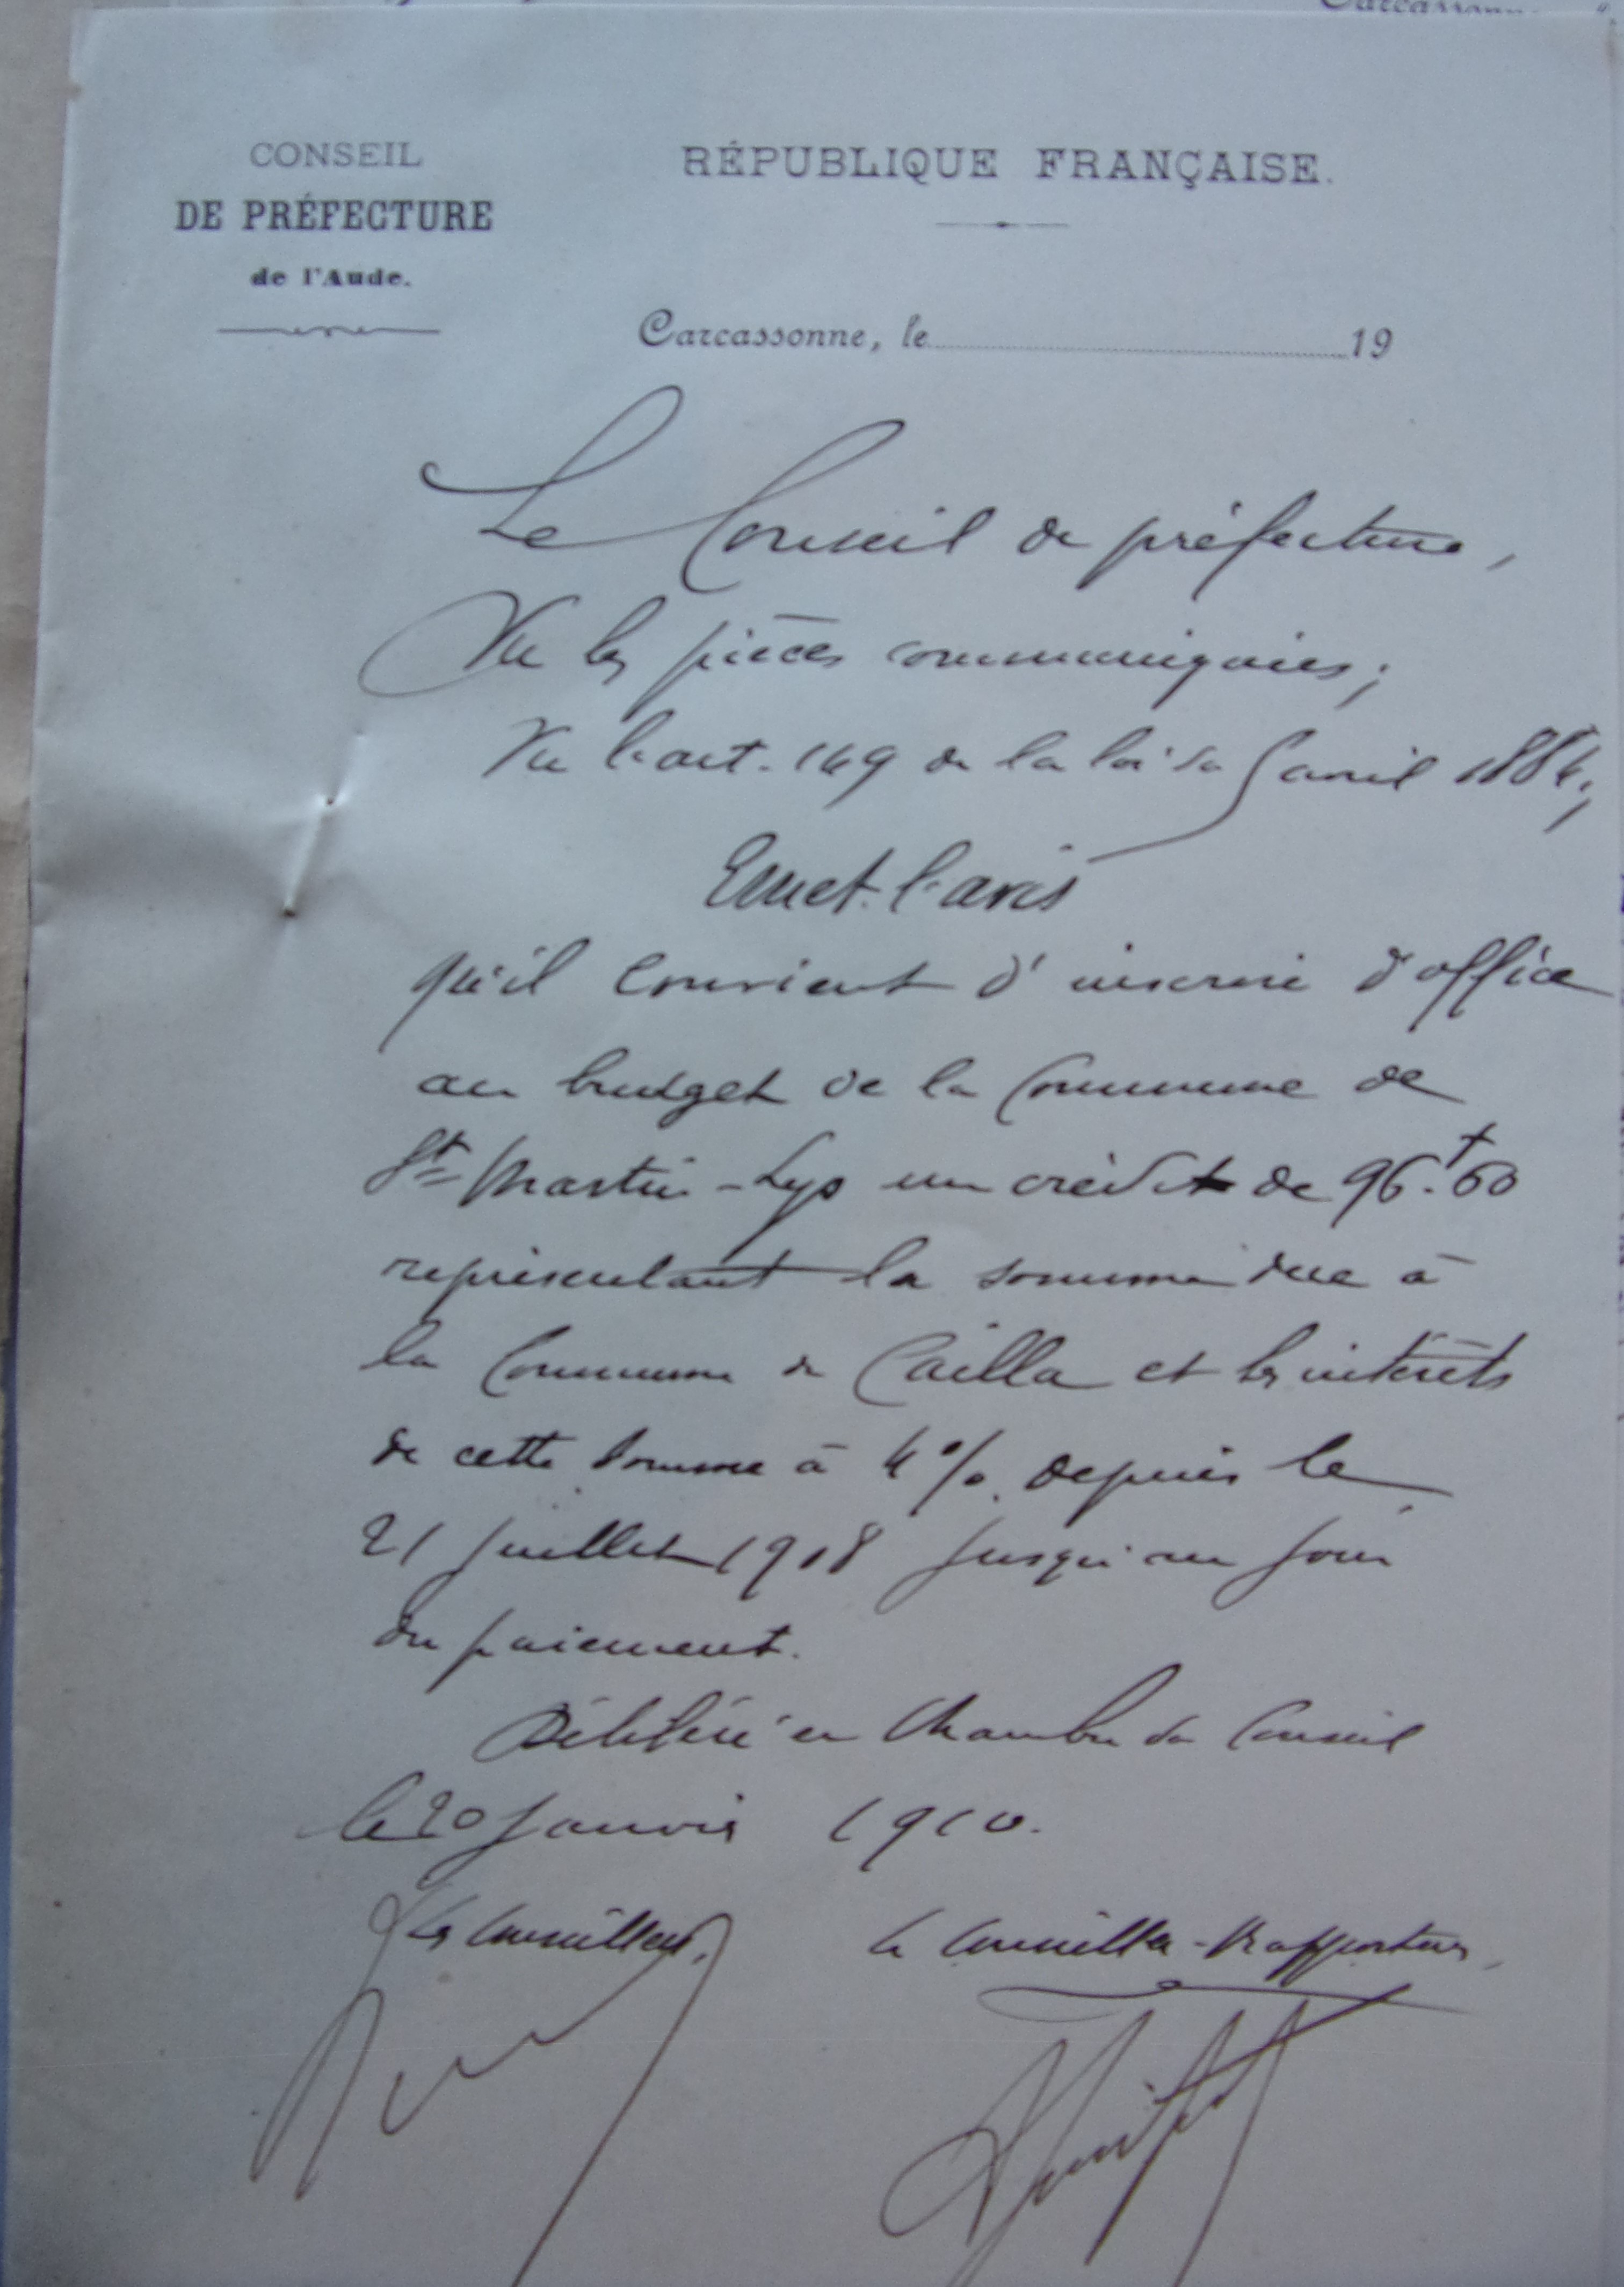 Carcassonne
CONSEIL
DE PRÉFECTURE
de l'Aude.
RÉPUBLIQUE FRANÇAISE.
Carcassonne, le 19
Le Conseil de préfecture,
Vu les pièces communiquées ;
Vu l'art. 149 de la loi du 5 avril 1884 ;
Emet l'avis
qu'il convient d'inscrire d'office
au budget de la Commune de
St Martin-Lys un crédit de 96f.60
représentant la somme due à
la Commune de Cailla et les intérêts
de cette somme à 4 %. depuis le
21 Juillet 1908 jusqu'au jour
du paiement.
Délibéré en Chambre du Conseil
le 20 Janvier 1910.
Les Conseillers,
Le Conseiller-Rapporteur,